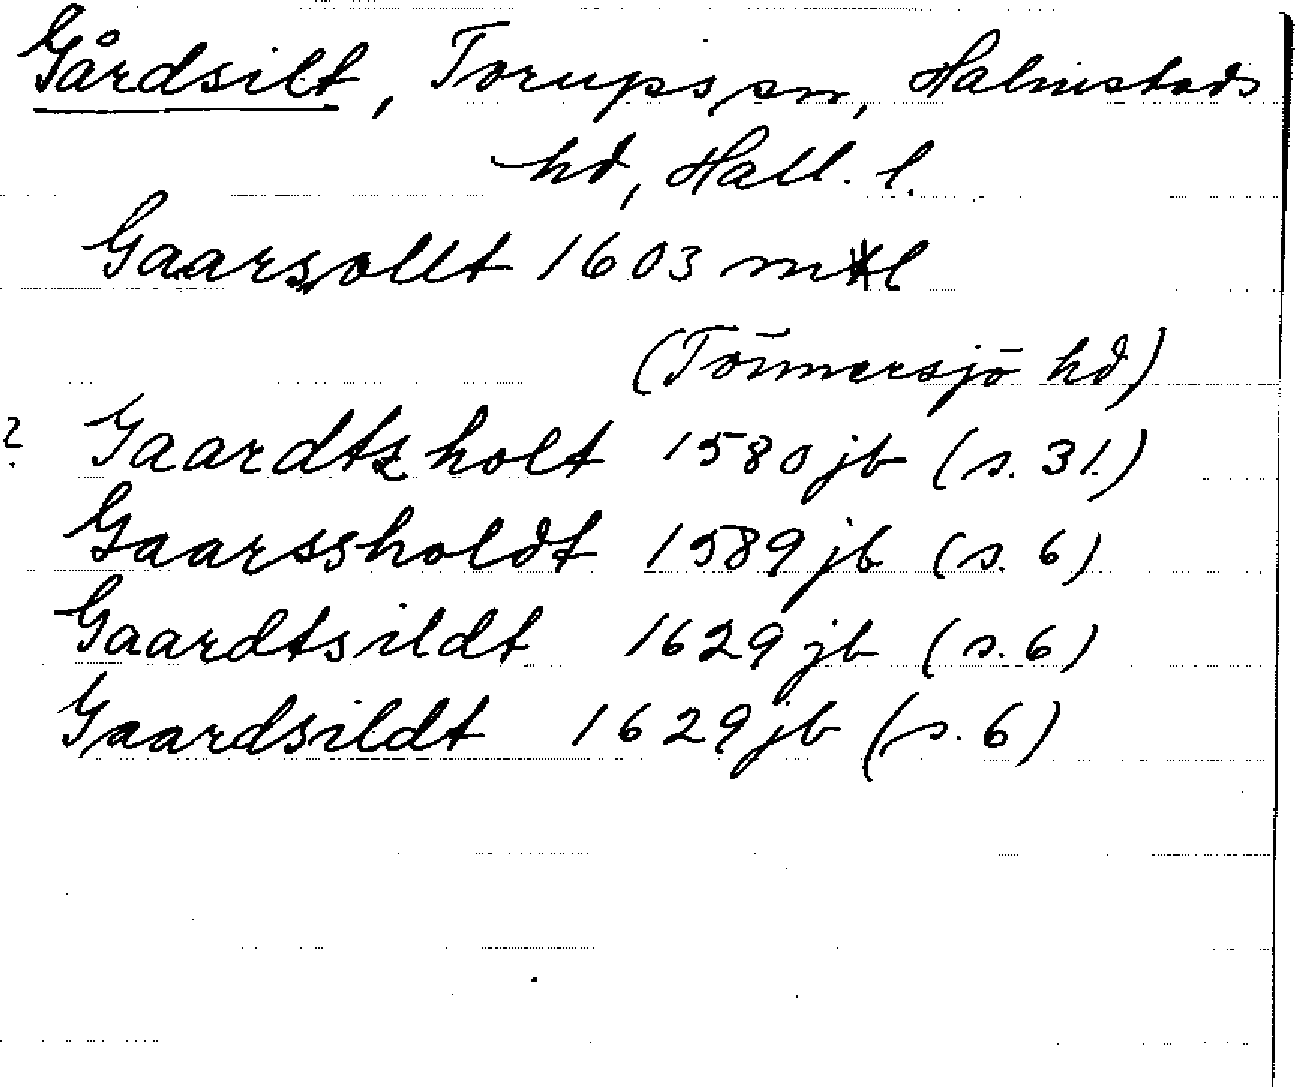 Gårdsilt, Torups sn, Halmstads
hd, Hall. l.
Gaarsollt 1603 mtl
(Tönnersjö hd)
? Gaardtzholt 1580 jb (s. 31.)
Gaarssholdt 1589 jb (s. 6)
Gaardtsildt 1629 jb (s. 6)
Gaardsildt 1629 jb (s. 6)